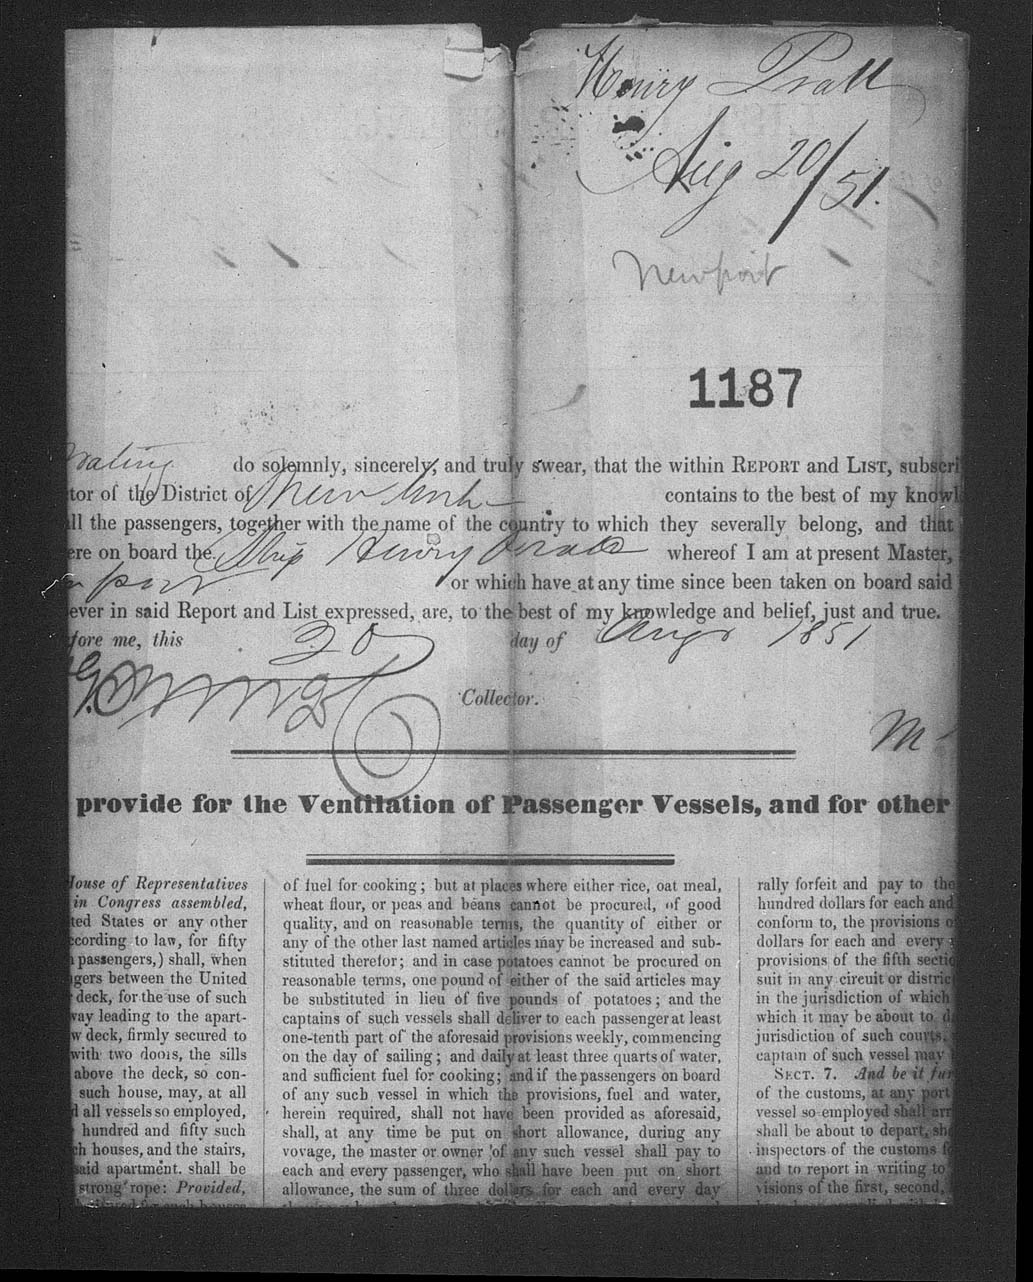 Henry Pratt
Aug 20/51.
Newport
1187
do solemnly, sincerely, and truly swear, that the within REPORT and LIST, subscri
tor of the District of New York contains to the best of my knowl
ll the passengers, together with the name of the country to which they severally belong, and that
ere on board the Ship Henry Pratt whereof I am at present Master,
port or which have at any time since been taken on board said
ever in said Report and List expressed, are, to the best of my knowledge and belief, just and true.
fore me, this 20 day of Augt 1851
Collector.
M
provide for the Ventilation of Passenger Vessels, and for other
House of Representatives
in Congress assembled,
ted States or any other
ccording to law, for fifty
passengers,) shall, when
gers between the United
deck, for the use of such
way leading to the apart-
w deck, firmly secured to
with two doors, the sills
above the deck, so con-
such house, may, at all
d all vessels so employed,
hundred and fifty such
ch houses, and the stairs,
said apartment. shall be
strong rope: Provided,
of fuel for cooking; but at places where either rice, oat meal,
wheat flour, or peas and beans cannot be procured, of good
quality, and on reasonable terms, the quantity of either or
any of the other last named articles may be increased and sub-
stituted therefor; and in case potatoes cannot be procured on
reasonable terms, one pound of either of the said articles may
be substituted in lieu of five pounds of potatoes; and the
captains of such vessels shall deliver to each passenger at least
one-tenth part of the aforesaid provisions weekly, commencing
on the day of sailing; and daily at least three quarts of water,
and sufficient fuel for cooking; and if the passengers on board
of any such vessel in which the provisions, fuel and water,
herein required, shall not have been provided as aforesaid,
shall, at any time be put on short allowance, during any
voyage, the master or owner of any such vessel shall pay to
each and every passenger, who shall have been put on short
allowance, the sum of three dollars for each and every day
rally forfeit and pay to the
hundred dollars for each and
conform to, the provisions o
dollars for each and every
provisions of the fifth sectio
suit in any circuit or distric
in the jurisdiction of which
which it may be about to d
jurisdiction of such courts.
captain of such vessel may
SECT. 7. And be it fur
of the customs, at any port
vessel so employed shall arr
shall be about to depart, sh
inspectors of the customs f
and to report in writing to
visions of the first, second,